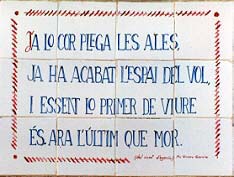 JA LO COR PLEGA LES ALES,
JA HA ACABAT L'ESPAI DEL VOL,
I ESSENT LO PRIMER DE VIURE
ÉS ARA L'ÚLTIM QUE MOR.